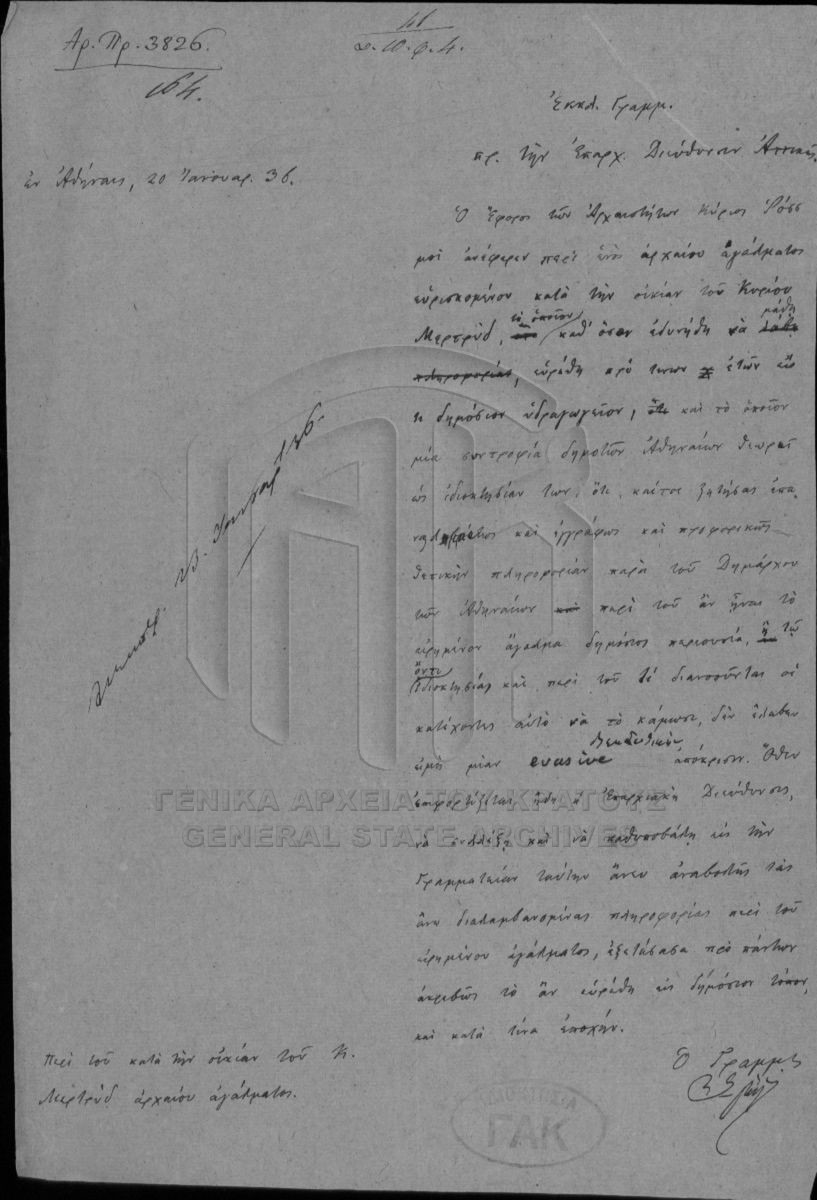 Αρ. Πρ. 3826.
164.
Ἐκκλ. Γραμμ.
πρ. τὴν Ἐπαρχ. Διεύθυνσιν Ἀττικῆς.
Ἐν Ἀθήναις, 20 Ἰανουαρ. 36.
Ὁ Ἔφορος τῶν Ἀρχαιοτήτων Κύριος Ῥόσς
μοὶ ἀνέφερεν περὶ ἑνὸς ἀρχαίου ἀγάλματος
εὑρισκομένου κατὰ τὴν οἰκίαν τοῦ Κυρίου
τὸ ὁποῖον καθ' ὅσον ἐδυνήθη νὰ μάθῃ
πληροφορίας, εὑρέθη πρό τινων ἐτῶν εἰς
τι δημόσιον ὑδραγωγεῖον, καὶ τὸ ὁποῖον
μία συντροφία δημοτῶν Ἀθηναίων θεωρεῖ
ὡς ἰδιοκτησίαν των, ὅτι, καίτοι ζητήσας ἐπα
νειλημμένως καὶ ἐγγράφως καὶ προφορικῶς
θετικὴν πληροφορίαν παρὰ τοῦ Δημάρχου
τῶν Ἀθηναίων καὶ περὶ τοῦ ἂν ἦναι τὸ
εἰρημένον ἄγαλμα δημόσιος περιουσία, ἢ τῷ
ὄντι ἰδιοκτησία, καὶ περὶ τοῦ τί διανοοῦνται οἱ
κατέχοντες αὐτὸ νὰ τὸ κάμωσι, δὲν ἔλαβεν
εἰμὴ μίαν evasive ἀπόκρισιν. Ὅθεν
ἐπιφορτίζεται ἤδη ἡ Ἐπαρχιακὴ Διεύθυνσις,
νὰ συλλέξῃ καὶ νὰ καθυποβάλῃ εἰς τὴν
Γραμματείαν ταύτην ἄνευ ἀναβολῆς τὰς
ἄνω διαλαμβανομένας πληροφορίας περὶ τοῦ
εἰρημένου ἀγάλματος, ἐξετάσασα πρὸ πάντων
ἀκριβῶς τὸ ἂν εὑρέθη εἰς δημόσιον τόπον,
καὶ κατὰ τίνα ἐποχήν.
Ὁ Γραμμ
Περὶ τοῦ κατὰ τὴν οἰκίαν τοῦ Κ.
Μερτρὺδ ἀρχαίου ἀγάλματος.
ΓΕΝΙΚΑ ΑΡΧΕΙΑ ΤΟΥ ΚΡΑΤΟΥΣ
GENERAL STATE ARCHIVES
ΓΑΚ